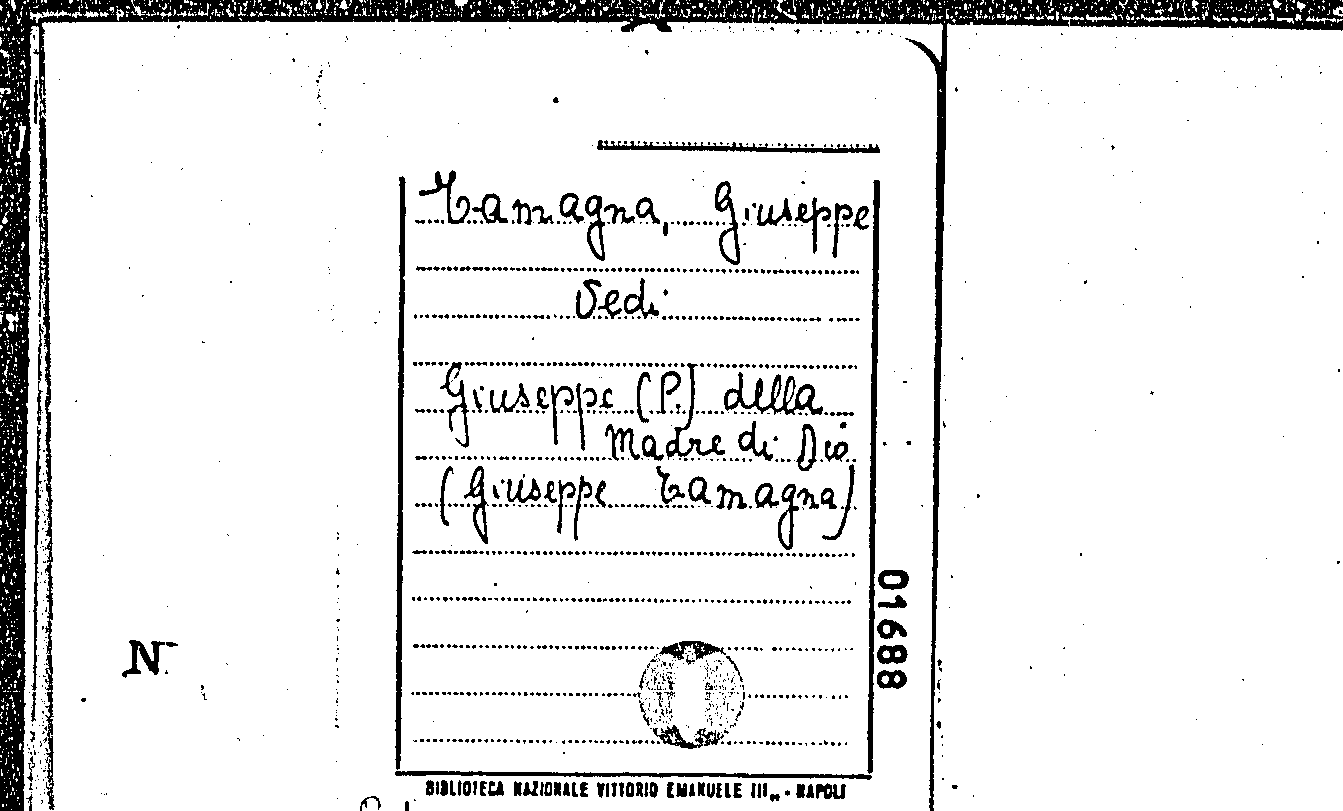 Tamagna, Giuseppe
Vedi
Giuseppe (P.) della
Madre di Dio
(Giuseppe Tamagna)
01688
N
BIBLIOTECA NAZIONALE VITTORIO EMANUELE III„ - NAPOLI